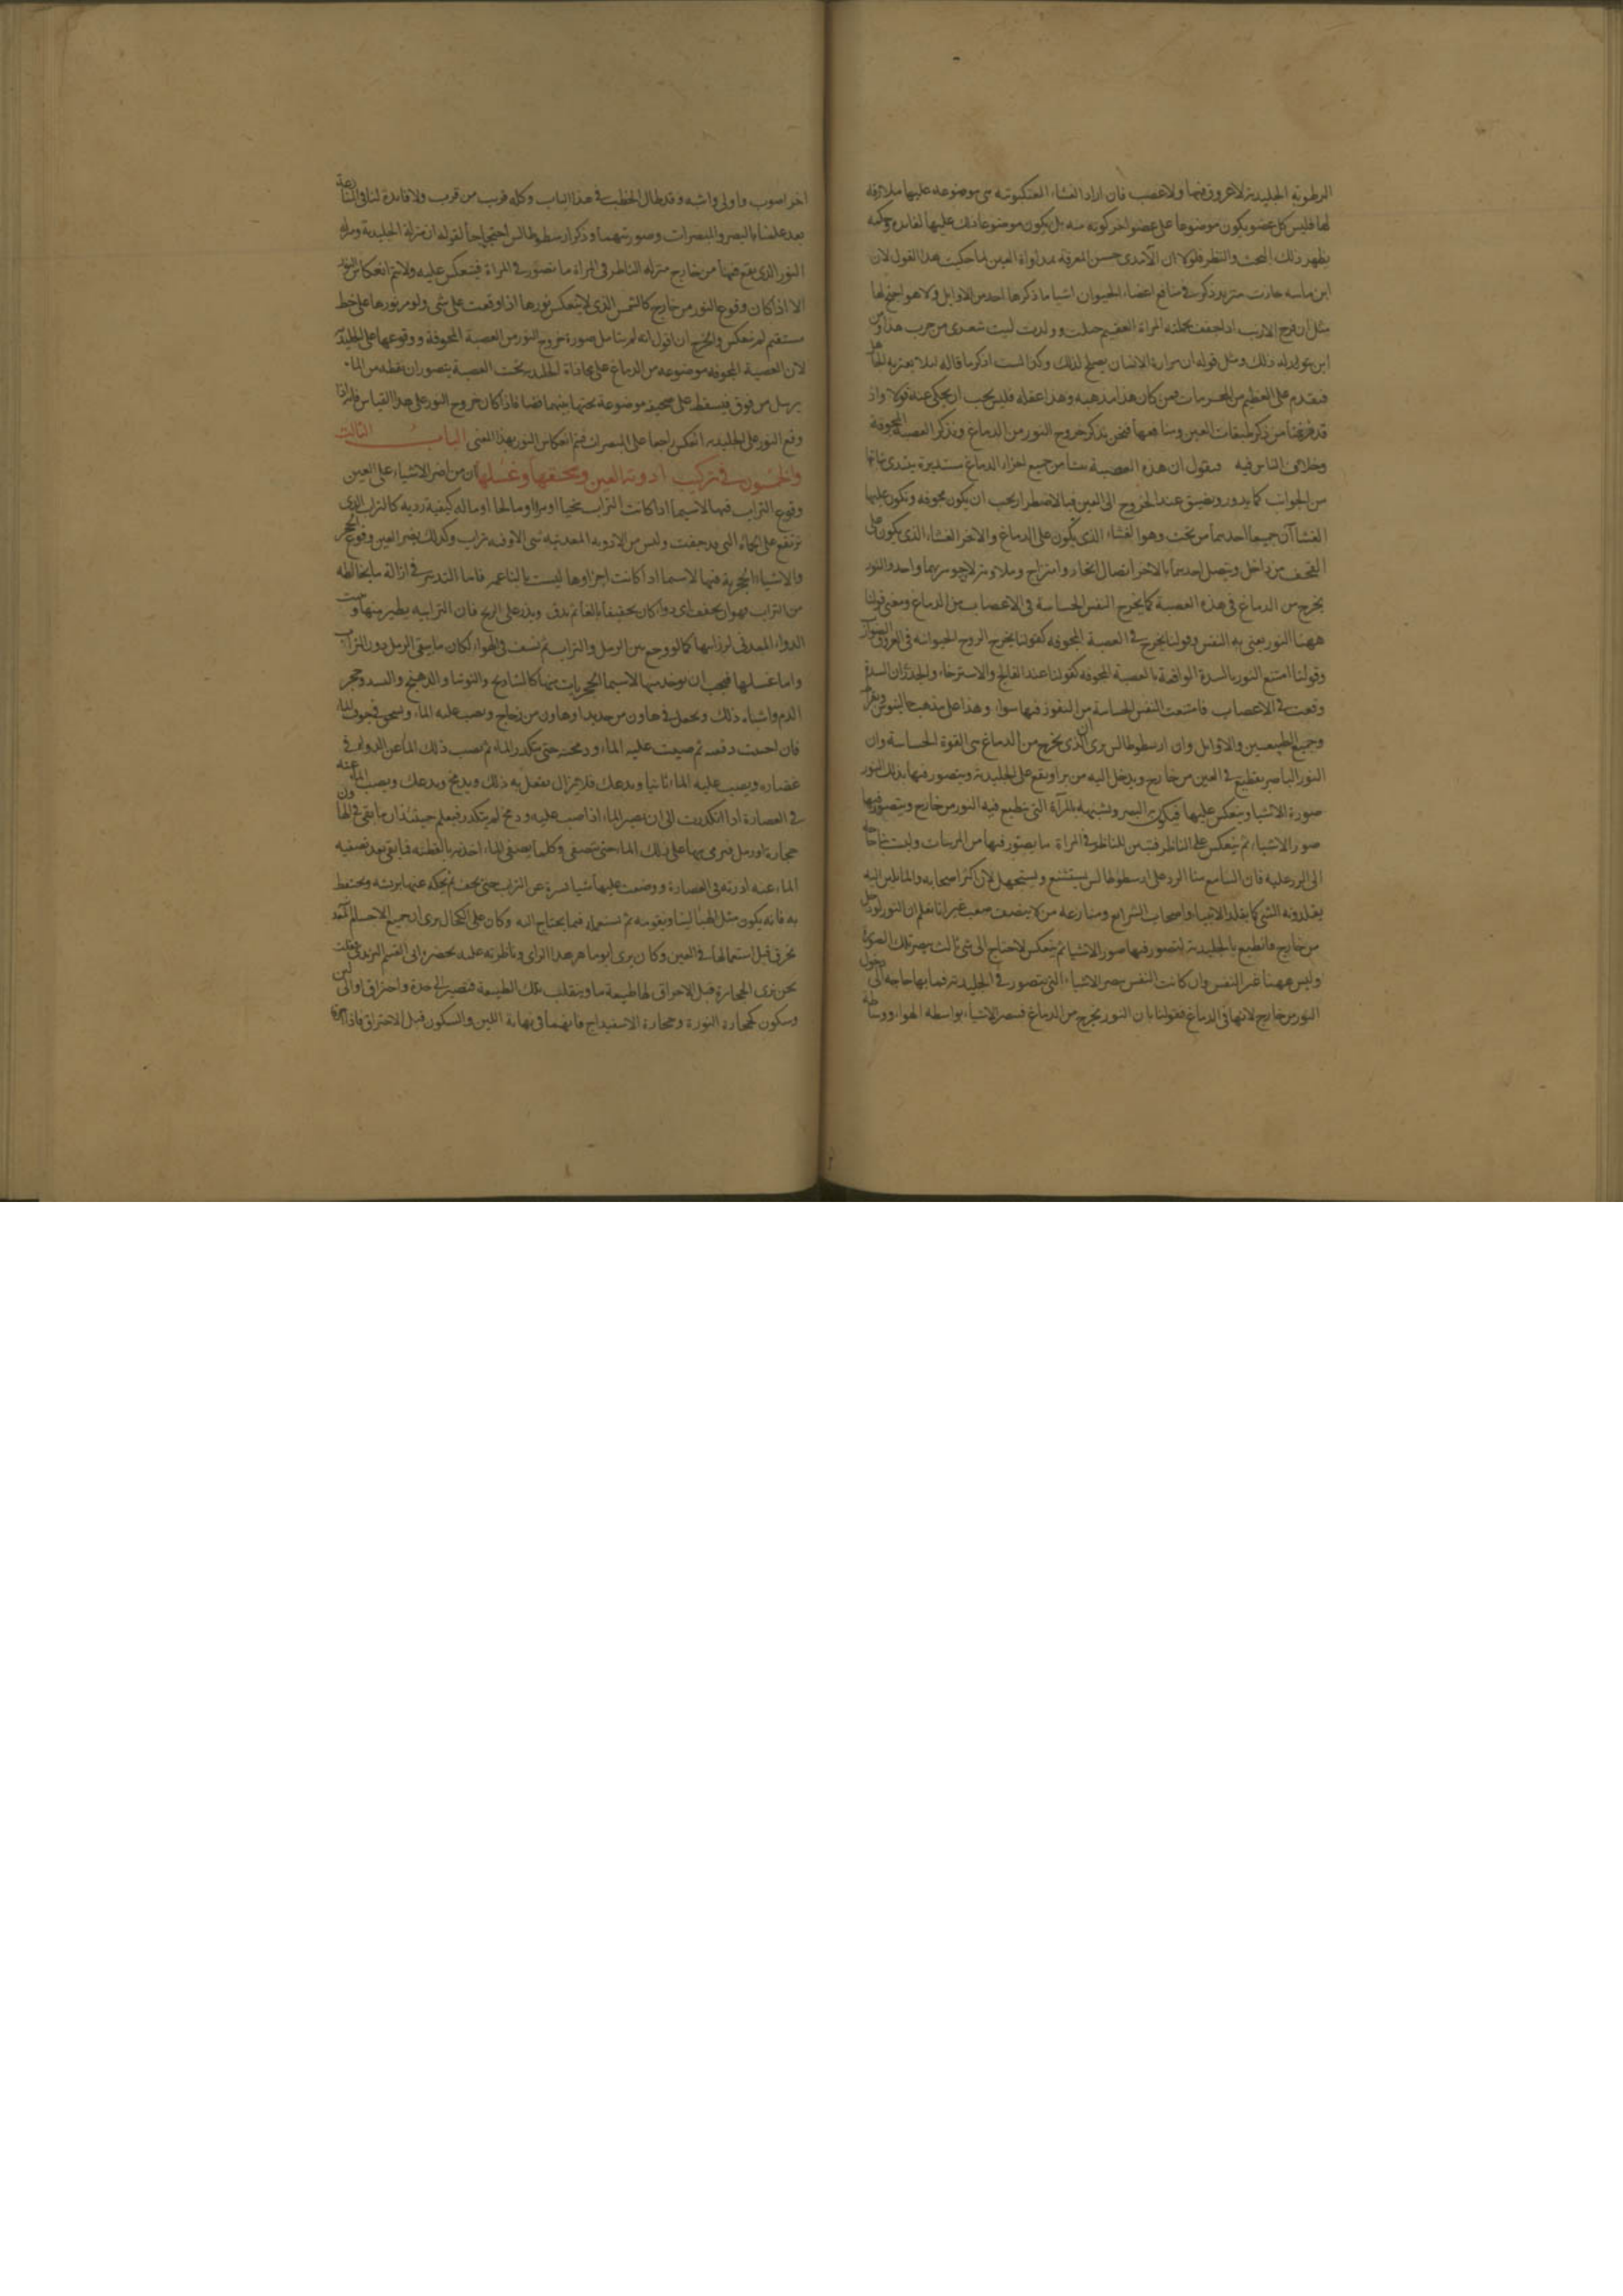 الرطوبة الجليدية لا عروق فيها ولا عصب فان اراد الغشاء العنكبوتية هي موضوعه عليها ملازقه
لها فليس كل عضو يكون موضوعا على عضو اخر كونه منه بل يكون موضوعا ذلك عليها لفائده وحكمه
يظهر ذلك البحث والنظر فلولا ان الآمدى حسن المعرفة بمداواة العين لما حكيت هذا القول لان
ابن ماسه ذكر في منافع اعضاء الحيوان اشيا ما ذكرها احد من الاوايل ولا هو احتج لها
مثل ان فرج الارنب اذا جفف تحملته المراة العقيم حملت وولدت ليت شعرى من جرب هذا ومن
اين تولد له ذلك ومثل قوله ان مرارة الانسان يصلح لذلك وكذا لست اذكر ما قاله لئلا يغتر به الجاهل
فيقدم على العظيم من المحرمات فمن كان هذا مذهبه وهذا عقله فليس يجب ان يحكى عنه قولا واذ
قد فرغنا من ذكر طبقات العين ومنافعها فنحن نذكر خروج النور من الدماغ ونذكر العصبة المجوفة
وخلاف الناس فيه فنقول ان هذه العصبة منشا من جميع اجزاء الدماغ مستديرة يبتدى
من الجوانب كما يدور ويضيق عند الخروج الى العين فبالاضطرار يجب ان يكون مجوفه ويكون عليها
الغشاآن جميعا احدهما من تحت وهو الغشاء الذى يكون على الدماغ والاخر الغشاء الذى يكون على
القحف من داخل ويتصل احدهما بالاخر اتصال اتحاد وامتزاج وملاومة لا جوهرهما واحد والنور
يخرج من الدماغ في هذه العصبة كما يخرج النفس الحساسة في الاعصاب من الدماغ ومعنى قولنا
ههنا النور يعنى به النفس وقولنا يخرج في العصبة المجوفه كقولنا يخرج الروح الحيوانيه في العروق الضوارب
وقولنا امتنع النور بالسدة الواقعة بالعصبة المجوفه كقولنا عند الفالج والاسترخاء والخدر ان السدة
وقعت في الاعصاب فامتنعت النفس الحساسة من النفوذ فيها سواء وهذا على مذهب جالينوس وبقراط
وجميع الطبيعيين والاوايل وان ارسطوطالس يرى ان الذى يخرج من الدماغ هي القوة الحساسة وان
النور الباصر ينطبع في العين من خارج ويدخل اليه من برا ويقع على الجليدية ويتصور فيها بذلك النور
صورة الاشيا وينعكس عليها فيكون البصر ويشبهه بالمرآة التي ينطبع فيه النور من خارج ويتصور فيها
صور الاشياء ثم ينعكس على الناظر فيتبين للناظر في المراة ما يتصور فيها من المرييات وليست بنا حاجة
الى الرد عليه فان السامع منا الرد على ارسطوطالس يستشنع ويستجهل لان اكثر اصحابه والمايلين اليه
يقلدونه الشي كما يقلد الانبياء واصحاب الشرايع ومنازعة من لا ينصف صعب غير انا نعلم ان النور لو دخل
من خارج فانطبع بالجليدية ليتصور فيها صور الاشيا ثم ينعكس لاحتاج الى شي ثالث يبصر تلك الصورة
وليس ههنا غير النفس وان كانت النفس تبصر الاشياء التي يتصور في الجليدية فما بها حاجة الى دخول
النور من خارج لانها في الدماغ فقولنا بان النور يخرج من الدماغ فيبصر الاشياء بواسطة الهواء
اخر اصوب واولى واشبه وقد طال الخطب في هذا الباب وكله قريب من قريب ولا فايدة لنا في المنازعة
بعد علمنا بالبصر والمبصرات وصورتهما وذكر ارسطوطالس احتجاجا لقوله ان منزلة الجليدية ومنزلة
النور الذى يقع فيها من خارج منزلة الناظر في المراة ما تصور في المراة فينعكس عليه ولا يتم انعكاس النور
الا اذا كان وقوع النور من خارج كالشمس الذى لا ينعكس نورها اذا وقعت على شي ولو مر نورها على خط
مستقيم لم ينعكس ان اقول انه لم يتامل صورة خروج النور من العصبة المجوفة ووقوعها على الجليدية
لان العصبة المجوفه موضوعه من الدماغ على محاذاة الجليدية تحت العصبة يتصور ان نقطه من الماء
يرسل من فوق فيسقط على صحيفة موضوعة تحتها بينهما فضا فاذا كان خروج النور على هذا القياس
وقع النور على الجليدية انعكس راجعا على المبصرات فتم انعكاس النور بهذا المعنى الباب الثالث
والخمسون في تركيب ادوية العين وسحقها وغسلها ان من اضر الاشياء على العين
وقوع التراب فيها لا سيما اذا كانت التراب سبخيا او مرا او مالحا او ما له كيفية رديه كالتراب الذى
ترتفع على الحماة التي قد جففت وليس من الادويه المعدنيه شي الا وفيه تراب وكذلك يضر العين وقوع الحجر
والاشياء الحجرية فيها لا سيما اذا كانت اجزاوها ليست بالناعمه فاما التدبير في ازالة ما يخالطه
من التراب فهو ان يجفف اى دواء كان تجفيفا بالغا ثم يدق ويذر على الريح فان الترابيه يطير منها
الدواء المعدني لرزانتها كما لو وجمع بين الرمل والتراب ثم نسف في الهواء لكان ما يبقى الرمل دون التراب
واما غسلها فيجب ان يوخذ منها لا سيما الحجريات منها كالشاذنج والتوتيا والدهنج والسد وحجر
الدم واشباه ذلك ويجعل في هاون من حديد او هاون من زجاج ويصب عليه الماء ويسحق في جوف الماء
فان احببت دقعه ثم صببت عليه الماء ودمخته حتى يتكدر الماء ثم يصب ذلك الماء عن الدواء في
غضاره ويصب عليه الماء ثانيا ويدعك فلا يزال يفعل به ذلك ويدمخ ويدعك ويصب الماء عنه
في الغضارة اذا انكدرت الى ان يصير الماء اذا صب عليه ودمخ لم يتكدر فيعلم حينئذ ان ما بقى في الهاون
حجارة او رمل فيرمى بها على ذلك الماء حتى يتصفى وكلما يصفى الماء اخذته بالقطنه فما بقى بعد تصفيه
الماء عنه ادرته في الغضارة ووضعت عليها شيا يستره عن التراب حتى يجف ثم يحكه عنها بريشه ويحتفظ
به فانه يكون مثل الهبا لينا ونعومه ثم تستعمله فيما يحتاج اليه وكان على الكحال يرى ان جميع الاجسام
تحرق قبل استعمالها في العين وكان يرى ابو ماهر هذا الراى وناظرته عليه بحضرة ابى القسم فقلت
نحن نرى الحجارة قبل الاحراق لها طبيعة ما وينقلب تلك الطبيعة فتصير الى حدة واحتراق او الى لين
وسكون كحجارة النورة وحجارة الاسفيداج فانهما في نهاية اللين والسكون قبل الاحتراق فاذا